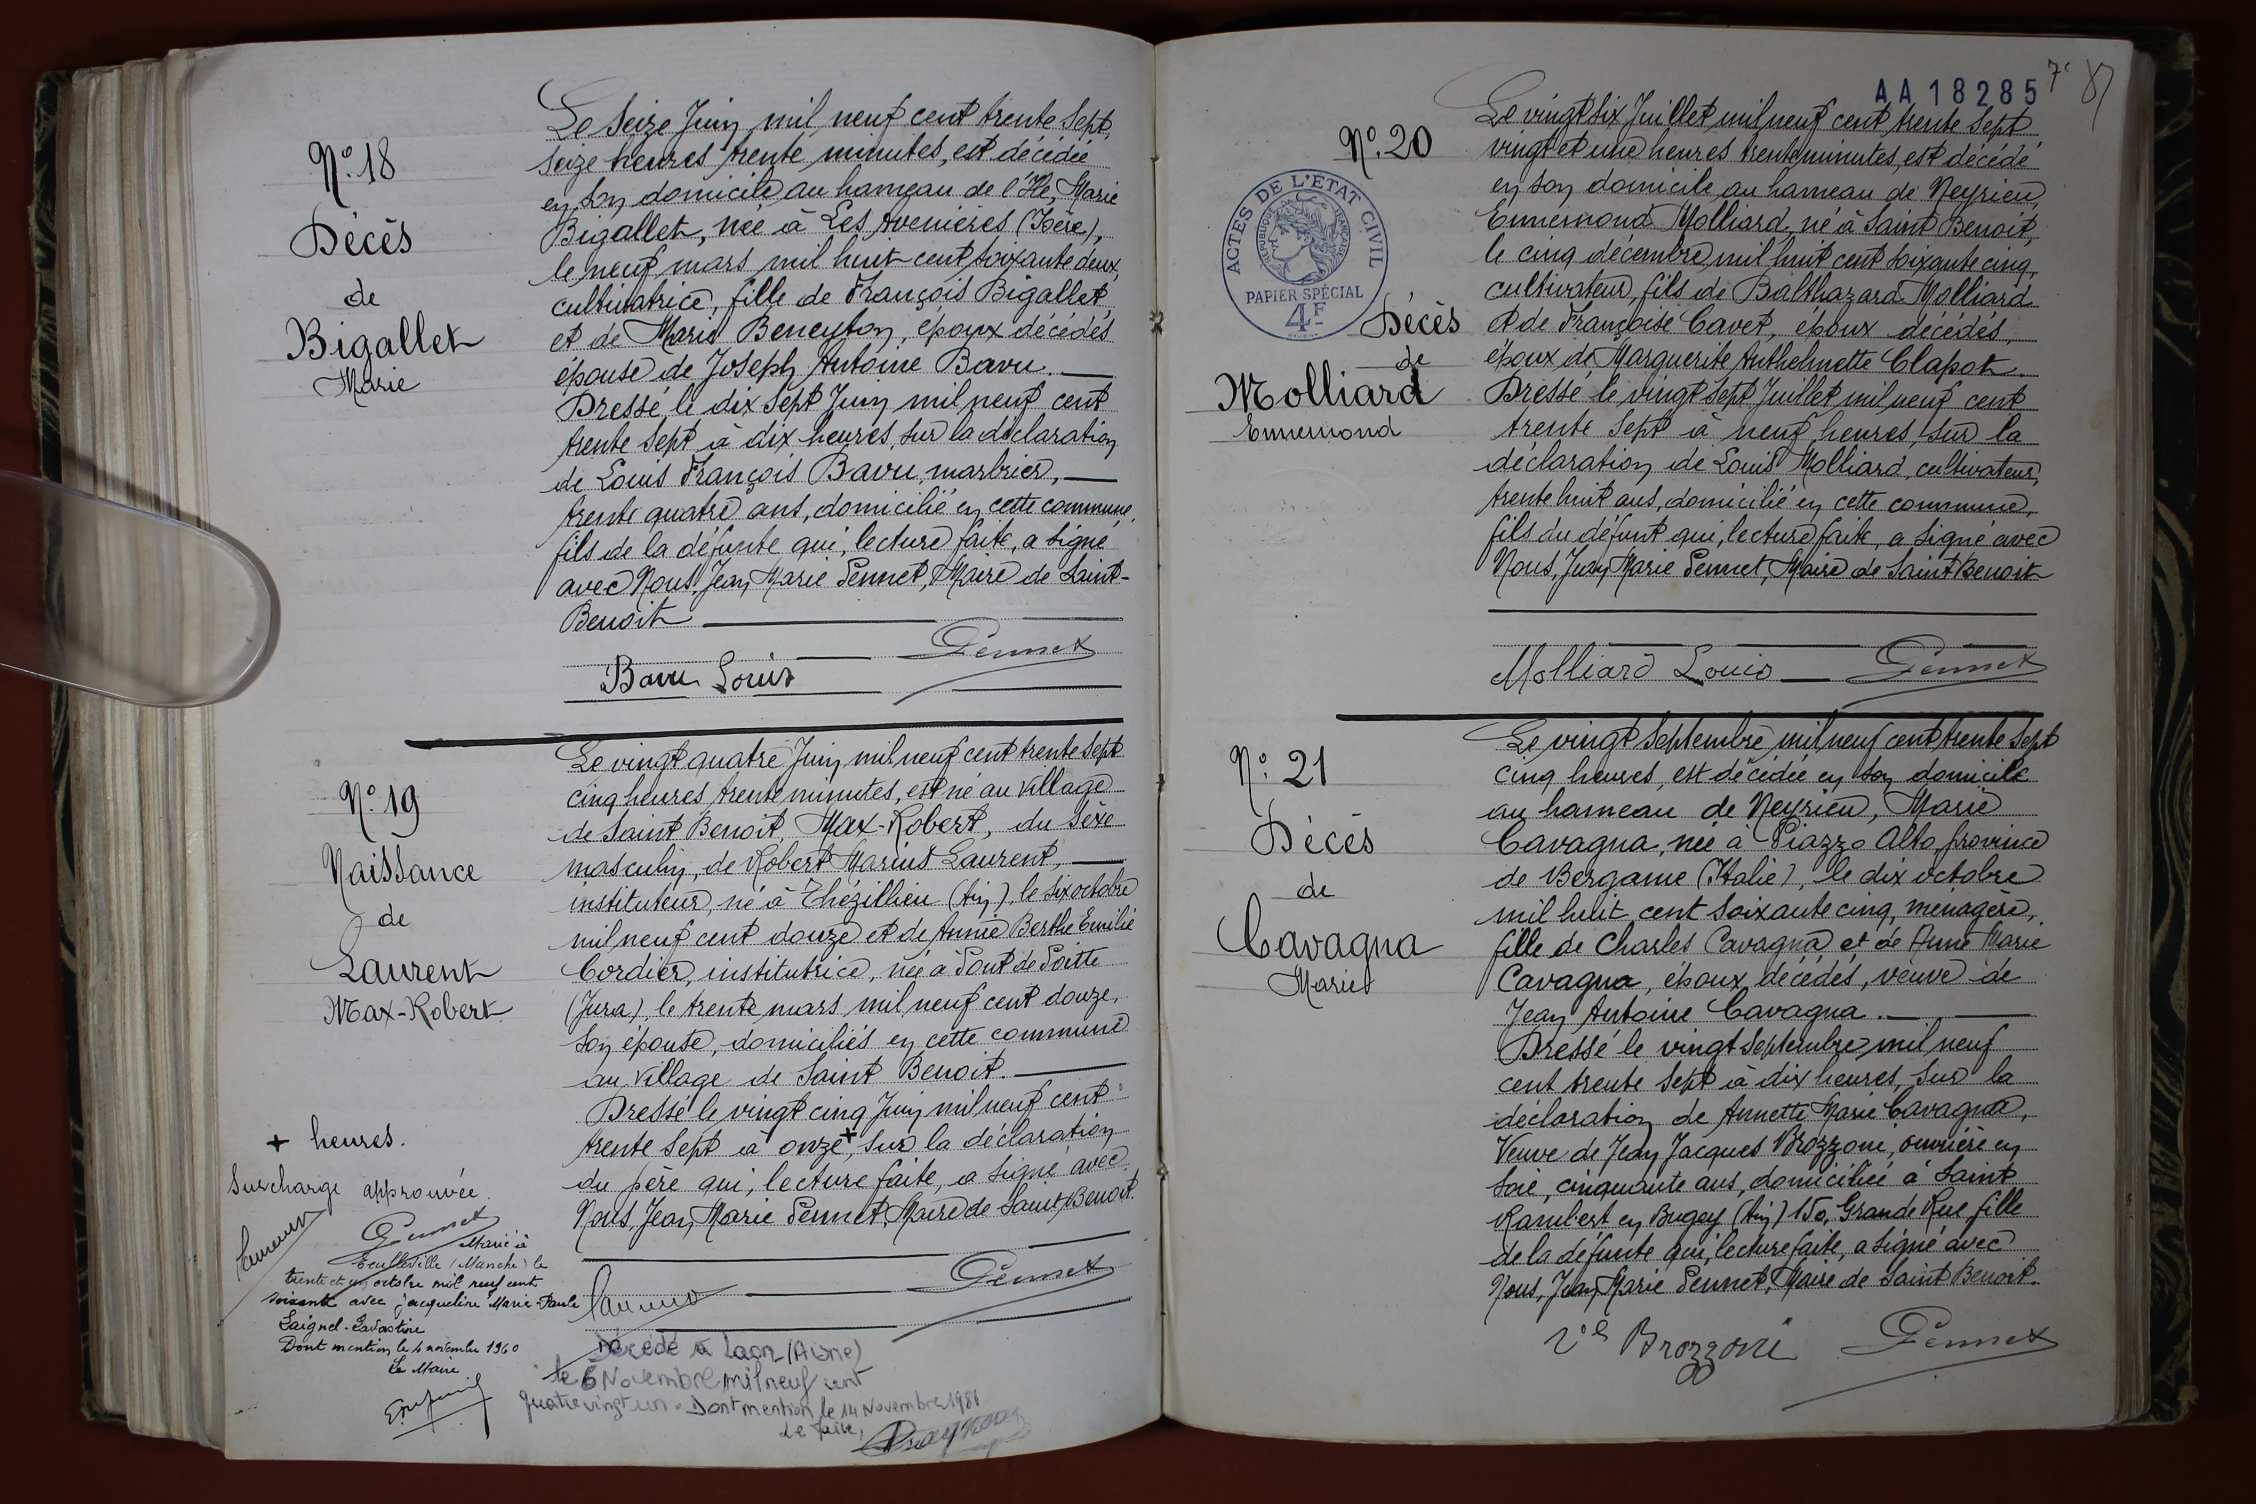 N° 18
Décès
de
Bigallet
Marie
Le seize Juin mil neuf cent trente sept,
seize heures trente minutes, est décédée
en son domicile au hameau de l'Ile, Marie
Bigallet, née à Les Avenières (Isère),
le neuf mars mil huit cent soixante deux,
cultivatrice, fille de François Bigallet
et de Marie Beneyton, époux décédés
épouse de Joseph Antoine Bavu.
Dressé le dix sept Juin mil neuf cent
trente sept à dix heures, sur la déclaration
de Louis François Bavu, marbrier,
trente quatre ans, domicilié en cette commune,
fils de la défunte qui, lecture faite, a signé
avec Nous, Jean Marie Pennet, Maire de Saint-
Benoit
Bavu Louis Pennet
N° 19
Naissance
de
Laurent
Max-Robert
Le vingt quatre Juin mil neuf cent trente sept
cinq heures trente minutes, est né au village
de Saint Benoit, Max-Robert, du sexe
masculin, de Robert Marius Laurent,
instituteur, né à Thézillieu (Ain), le six octobre
mil neuf cent douze et de Annie Berthe Emilie
Cordier, institutrice, née à Pont de Poitte
(Jura), le trente mars mil neuf cent douze,
son épouse, domiciliés en cette commune
au village de Saint Benoit.
Dressé le vingt cinq Juin mil neuf cent
trente sept à onze +, sur la déclaration
du père qui, lecture faite, a signé avec
Nous, Jean Marie Pennet, Maire de Saint Benoit.
Laurent Pennet
+ heures.
Surcharge approuvée.
Laurent Pennet
Marié à
(Manche) le
trente et un octobre mil neuf cent
soixante avec Jacqueline Marie-Paule
Saignel-Lavastine
Dont mention le 4 novembre 1960
Le Maire
Décédé à Laon (Aisne)
le 6 Novembre mil neuf cent
quatre vingt un. Dont mention le 14 Novembre 1981
Le Maire,
AA 18285
N° 20
ACTES DE L'ETAT CIVIL
REPUBLIQUE FRANÇAISE
PAPIER SPÉCIAL
4F
Décès
de
Molliard
Ennemond
Le vingt six Juillet mil neuf cent trente sept
vingt et une heures trente minutes, est décédé
en son domicile au hameau de Neyrieu,
Ennemond Molliard, né à Saint Benoit,
le cinq décembre mil huit cent soixante cinq,
cultivateur, fils de Balthazard Molliard
et de Françoise Cavet, époux décédés,
époux de Marguerite Anthelmette Clapot.
Dressé le vingt sept Juillet mil neuf cent
trente sept à neuf heures, sur la
déclaration de Louis Molliard, cultivateur,
trente huit ans, domicilié en cette commune,
fils du défunt qui, lecture faite, a signé avec
Nous, Jean Marie Pennet, Maire de Saint Benoit
Molliard Louis Pennet
N° 21
Décès
de
Cavagna
Marie
Le vingt Septembre mil neuf cent trente sept
cinq heures, est décédée en son domicile
au hameau de Neyrieu, Marie
Cavagna, née à Piazzo Alto, province
de Bergame (Italie), le dix octobre
mil huit cent soixante cinq, ménagère,
fille de Charles Cavagna et de Anne Marie
Cavagna, époux décédés, veuve de
Jean Antoine Cavagna.
Dressé le vingt Septembre mil neuf
cent trente sept à dix heures, sur la
déclaration de Annette Marie Cavagna,
Veuve de Jean Jacques Brozzoni, ouvrière en
soie, cinquante ans, domiciliée à Saint
Rambert en Bugey (Ain) 150, Grande Rue, fille
de la défunte qui, lecture faite, a signé avec
Nous, Jean Marie Pennet, Maire de Saint Benoit.
Ve Brozzoni Pennet